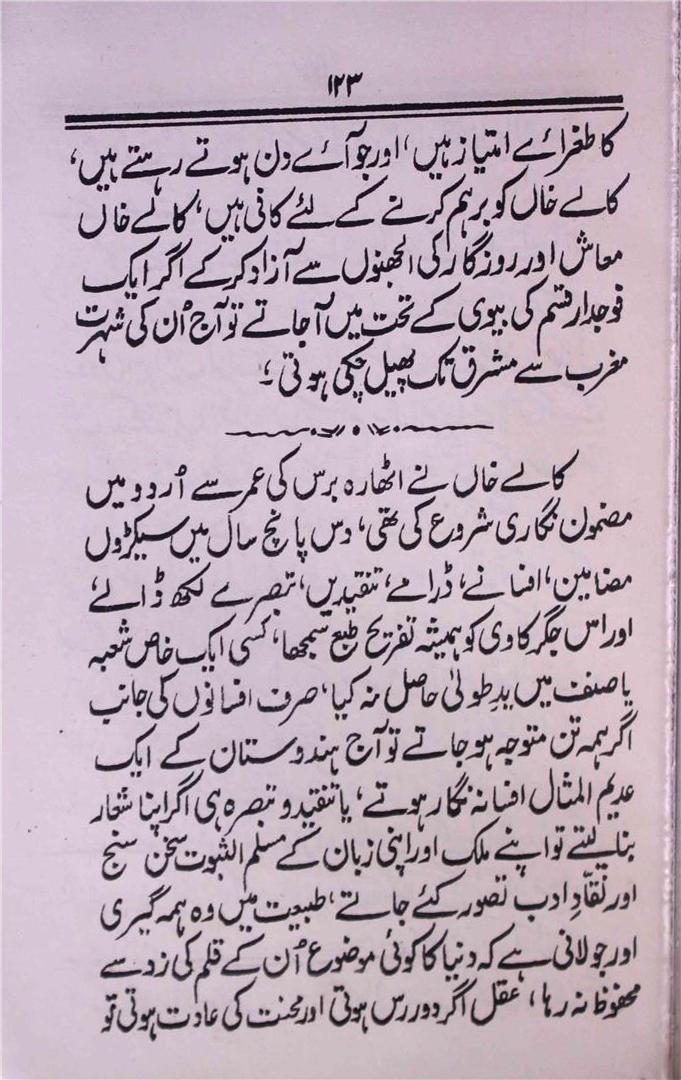 ۱۲۳
کا طغرائے امتیاز ہیں، اور جو آئے دن ہوتے رہتے ہیں،
کالے خاں کو برہم کرنے کے لئے کافی ہیں، کالے خاں
معاش اور روزگار کی الجھنوں سے آزاد کر کے اگر ایک
فوجدار قسم کی بیوی کے تحت میں آ جاتے تو آج اُن کی شہرت
مغرب سے مشرق تک پھیل چکی ہوتی ؛
کالے خاں نے اٹھارہ برس کی عمر سے اُردو میں
مضمون نگاری شروع کی تھی، دس پانچ سال میں سیکڑوں
مضامین، افسانے، ڈرامے، تنقیدیں، تبصرے لکھ ڈالے،
اور اس جگر کاوی کو ہمیشہ تفریحِ طبع سمجھا، کسی ایک خاص شعبہ
یا صنف میں یدِ طولیٰ حاصل نہ کیا، صرف افسانوں کی جانب
اگر ہمہ تن متوجہ ہو جاتے تو آج ہندوستان کے ایک
عدیم المثال افسانہ نگار ہوتے، یا تنقید و تبصرہ ہی اگر اپنا شعار
بنا لیتے تو اپنے ملک اور اپنی زبان کے مسلم الثبوت سخن سنج
اور نقادِ ادب تصور کئے جاتے، طبیعت میں وہ ہمہ گیری
اور جولانی ہے کہ دنیا کا کوئی موضوع اُن کے قلم کی زد سے
محفوظ نہ رہا، عقل اگر دوررس ہوتی اور محنت کی عادت ہوتی تو